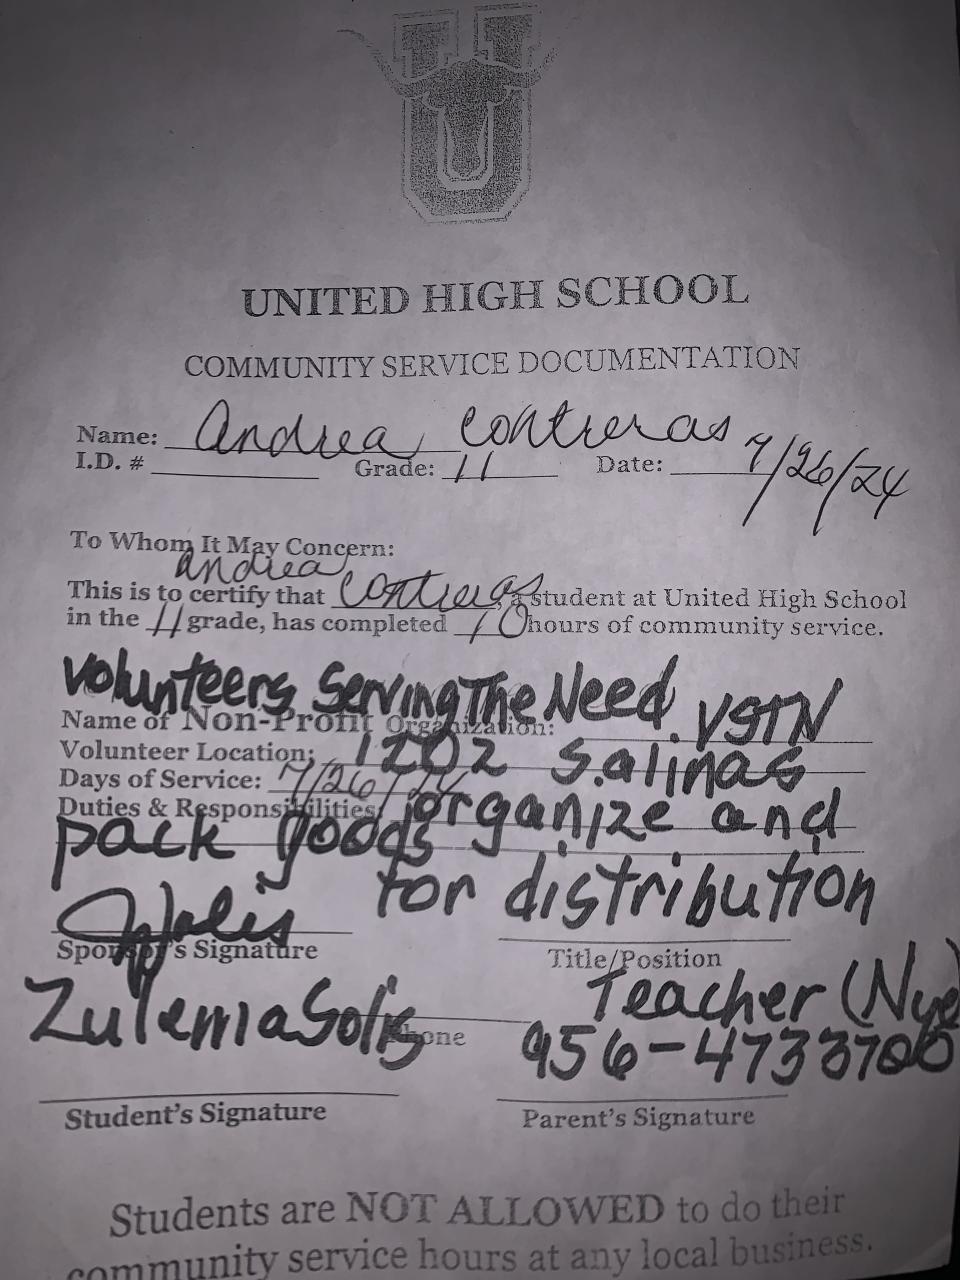 U
UNITED HIGH SCHOOL
COMMUNITY SERVICE DOCUMENTATION
Name: Andrea Contreras
I.D. # Grade: 11 Date: 7/26/24
To Whom It May Concern:
andrea
This is to certify that Contreras, a student at United High School
in the 11 grade, has completed 10 hours of community service.
Volunteers Serving The Need. VSTN
Name of Non-Profit Organization:
Volunteer Location: 1202 Salinas
Days of Service: 7/26/24
Duties & Responsibilities: organize and
pack goods
for distribution
Sponsor's Signature Title/Position
Zulema Solis Teacher (Nye
Phone 956-4733700
Student's Signature Parent's Signature
Students are NOT ALLOWED to do their
community service hours at any local business.